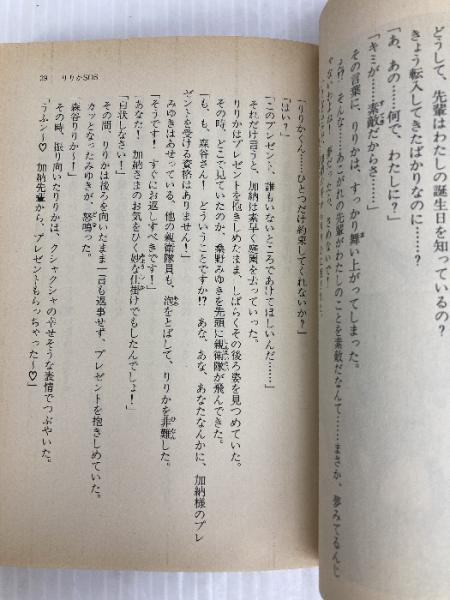 どうして、先輩はわたしの誕生日を知っているの?
きょう転入してきたばかりなのに……?
「あ、あの……何で、わたしに?」
「キミが……素敵だからさ……」
その言葉に、りりかは、すっかり舞い上がってしまった。
そんな……あこがれの先輩がわたしのことを素敵だなんて……まさか、夢みてるんじ
39 りりかSOS
「りりかくん……ひとつだけ約束してくれないか?」
「はい?」
「このプレゼント、誰もいないところであけてほしいんだ……」
それだけ言うと、加納は素早く庭園を去っていった。
りりかはプレゼントを抱きしめたまま、しばらくその後ろ姿を見つめていた。
その時、どこで見ていたのか、桑野みゆきを先頭に親衛隊が飛んできた。
「も、も、森谷さん! どういうことですか!? あな、あな、あなたなんかに、加納様のプレ
ゼントを受ける資格はありません!」
みゆきはあせっている。他の親衛隊員も、泡をとばして、りりかを非難した。
「そうです! すぐにお返しすべきです!」
「あなた! 加納さまのお気をひく妙な仕掛けでもしたんでしょ!」
「白状しなさい!」
その間、りりかは後ろを向いたまま一言も返事せず、プレゼントを抱きしめていた。
カッとなったみゆきが、怒鳴った。
「森谷りりか!」
その時、振り向いたりりかは、クシャクシャの幸せそうな表情でつぶやいた。
「うふン～♡ 加納先輩から、プレゼントもらっちゃった～♡」